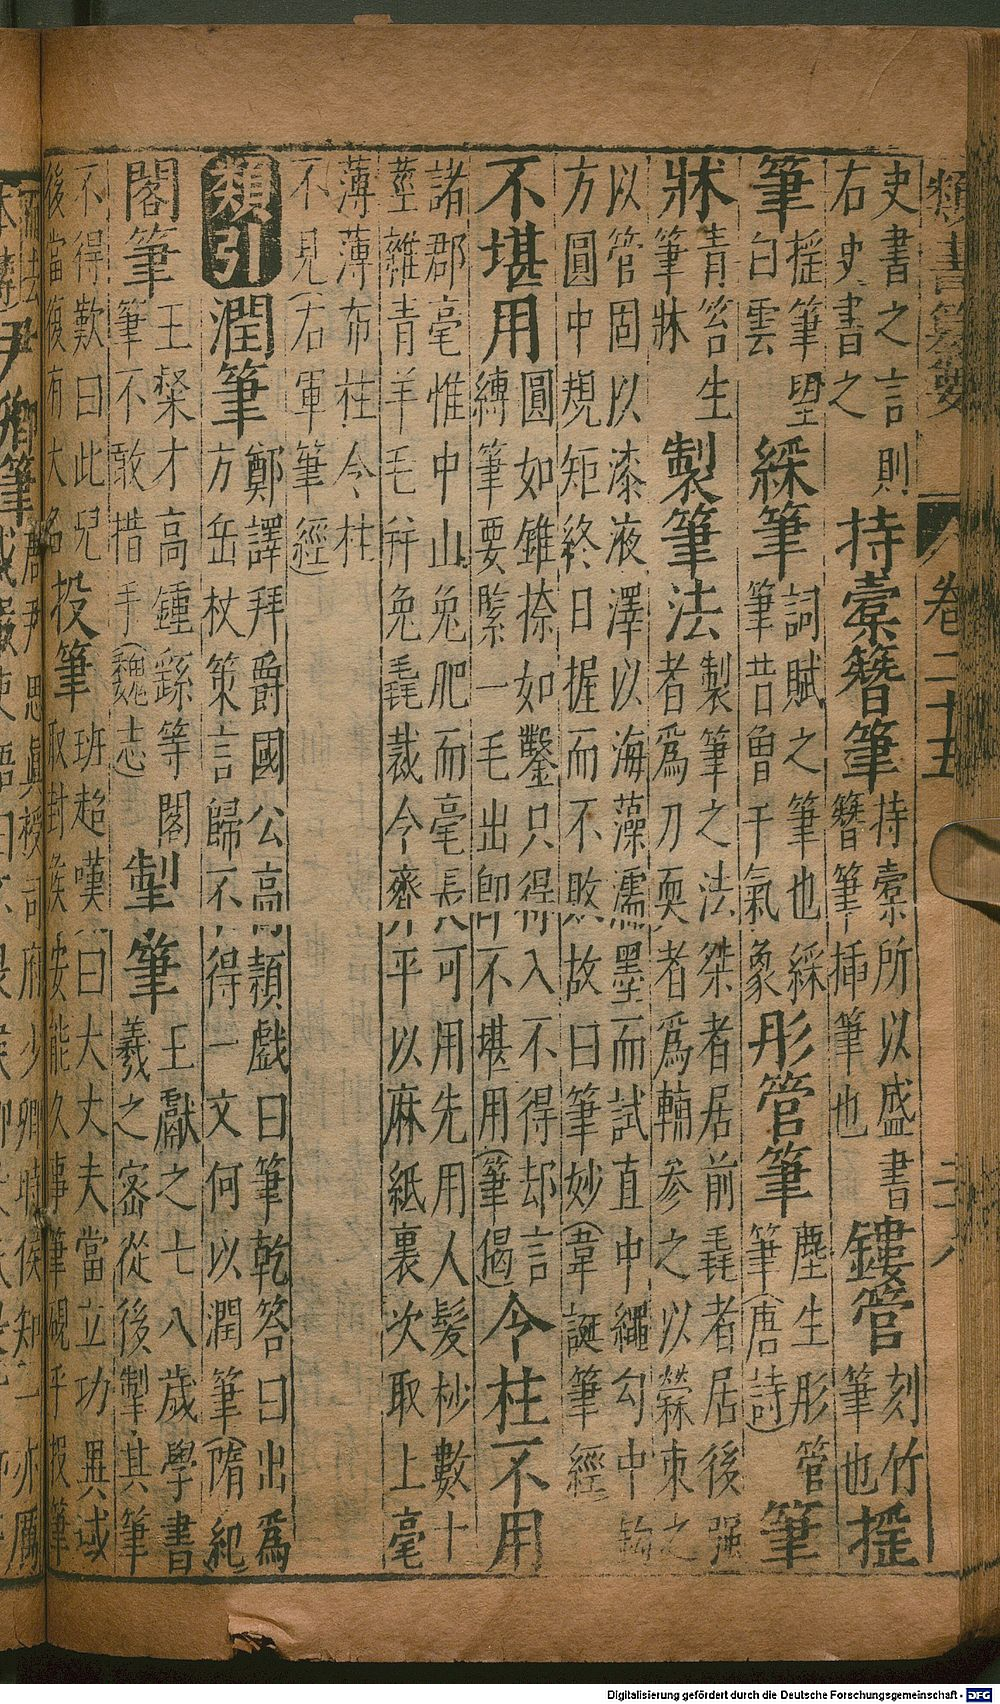 類書纂要 卷二十五 二八
史書之言則
右史書之
持橐簪筆
持橐所以盛書
簪筆揷筆也
鏤管
刻竹
筆也
搖
筆
搖筆望
白雲
綵筆
詞賦之筆也綵
筆昔曾干氣象
彤管筆
塵生彤管
筆(唐詩)
筆
牀
青箬生
筆牀
製筆法
製筆之法桀者居前毳者居後强
者為刀耎者為輔參之以束之
以管固以漆液澤以海藻濡墨而試直中繩勾中鈎
方圓中規矩終日握而不敗故曰筆妙(韋誕筆經
不堪用
圓如錐捺如鑿只得入不得却言
縛筆要緊一毛出卽不堪用(筆偈)
今柱不用
諸郡毫惟中山兔肥而毫長可用先用人髮杪數十
莖雜青羊毛幷兔毳裁令齊平以麻紙裹次取上毫
薄薄布柱令柱
不見(右軍筆經)
類引
潤筆
鄭譯拜爵國公高頴戲曰筆乾答曰出為
方岳杖策言歸不得一文何以潤筆(隋紀
閣筆
王粲才高鍾繇等閣
筆不敢措手(魏志)
掣筆
王獻之七八歲學書
羲之密從後掣其筆
不得歎曰此兒
後當復有大名
投筆
班超嘆曰大丈夫當立功異域
取封侯安能久事筆硯乎投筆
Digitalisierung gefördert durch die Deutsche Forschungsgemeinschaft - DFG